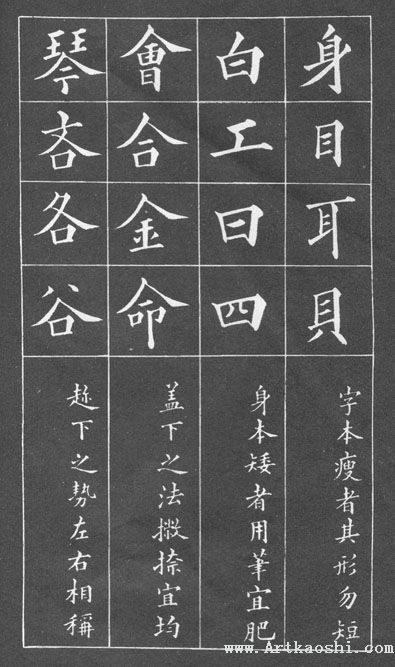 身目耳貝
字本瘦者其形勿短
白工曰四
身本矮者用筆宜肥
會合金命
盖下之法撇捺宜均
琴吝各谷
趂下之勢左右相稱
www.Artkaoshi.com